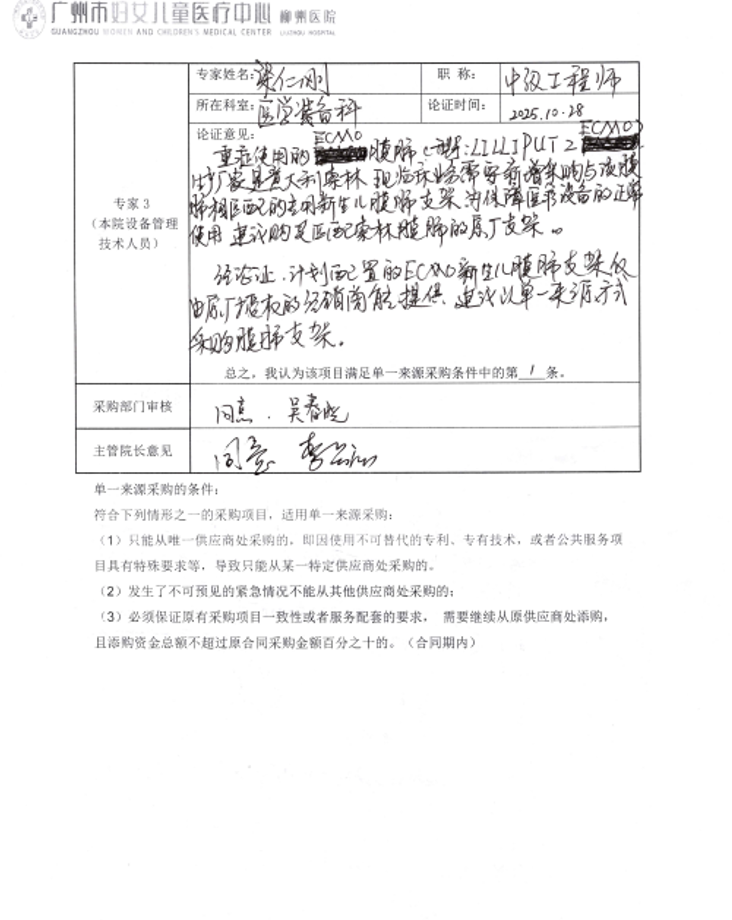 广州市妇女儿童医疗中心 柳州医院
GUANGZHOU WOMEN AND CHILDREN'S MEDICAL CENTER LIUZHOU HOSPITAL
专家3
（本院设备管理
技术人员）
专家姓名: 梁仁刚 职 称: 中级工程师
所在科室: 医学装备科 论证时间: 2025.10.28
论证意见:
重症使用的ECMO膜肺（型号:LILLIPUT 2 ECMO）
生产厂家是意大利索林 现临床业务需要新增采购与该膜
肺相匹配的专用新生儿膜肺支架 为保障医疗设备的正常
使用 建议购买匹配索林膜肺的原厂支架。
经论证、计划配置的ECMO新生儿膜肺支架仅
由原厂授权的经销商能提供 建议以单一来源方式
采购膜肺支架。
总之，我认为该项目满足单一来源采购条件中的第 1 条。
采购部门审核 同意. 吴春晓
主管院长意见 同意
单一来源采购的条件:
符合下列情形之一的采购项目，适用单一来源采购:
（1）只能从唯一供应商处采购的，即因使用不可替代的专利、专有技术，或者公共服务项
目具有特殊要求等，导致只能从某一特定供应商处采购的。
（2）发生了不可预见的紧急情况不能从其他供应商处采购的;
（3）必须保证原有采购项目一致性或者服务配套的要求， 需要继续从原供应商处添购，
且添购资金总额不超过原合同采购金额百分之十的。（合同期内）